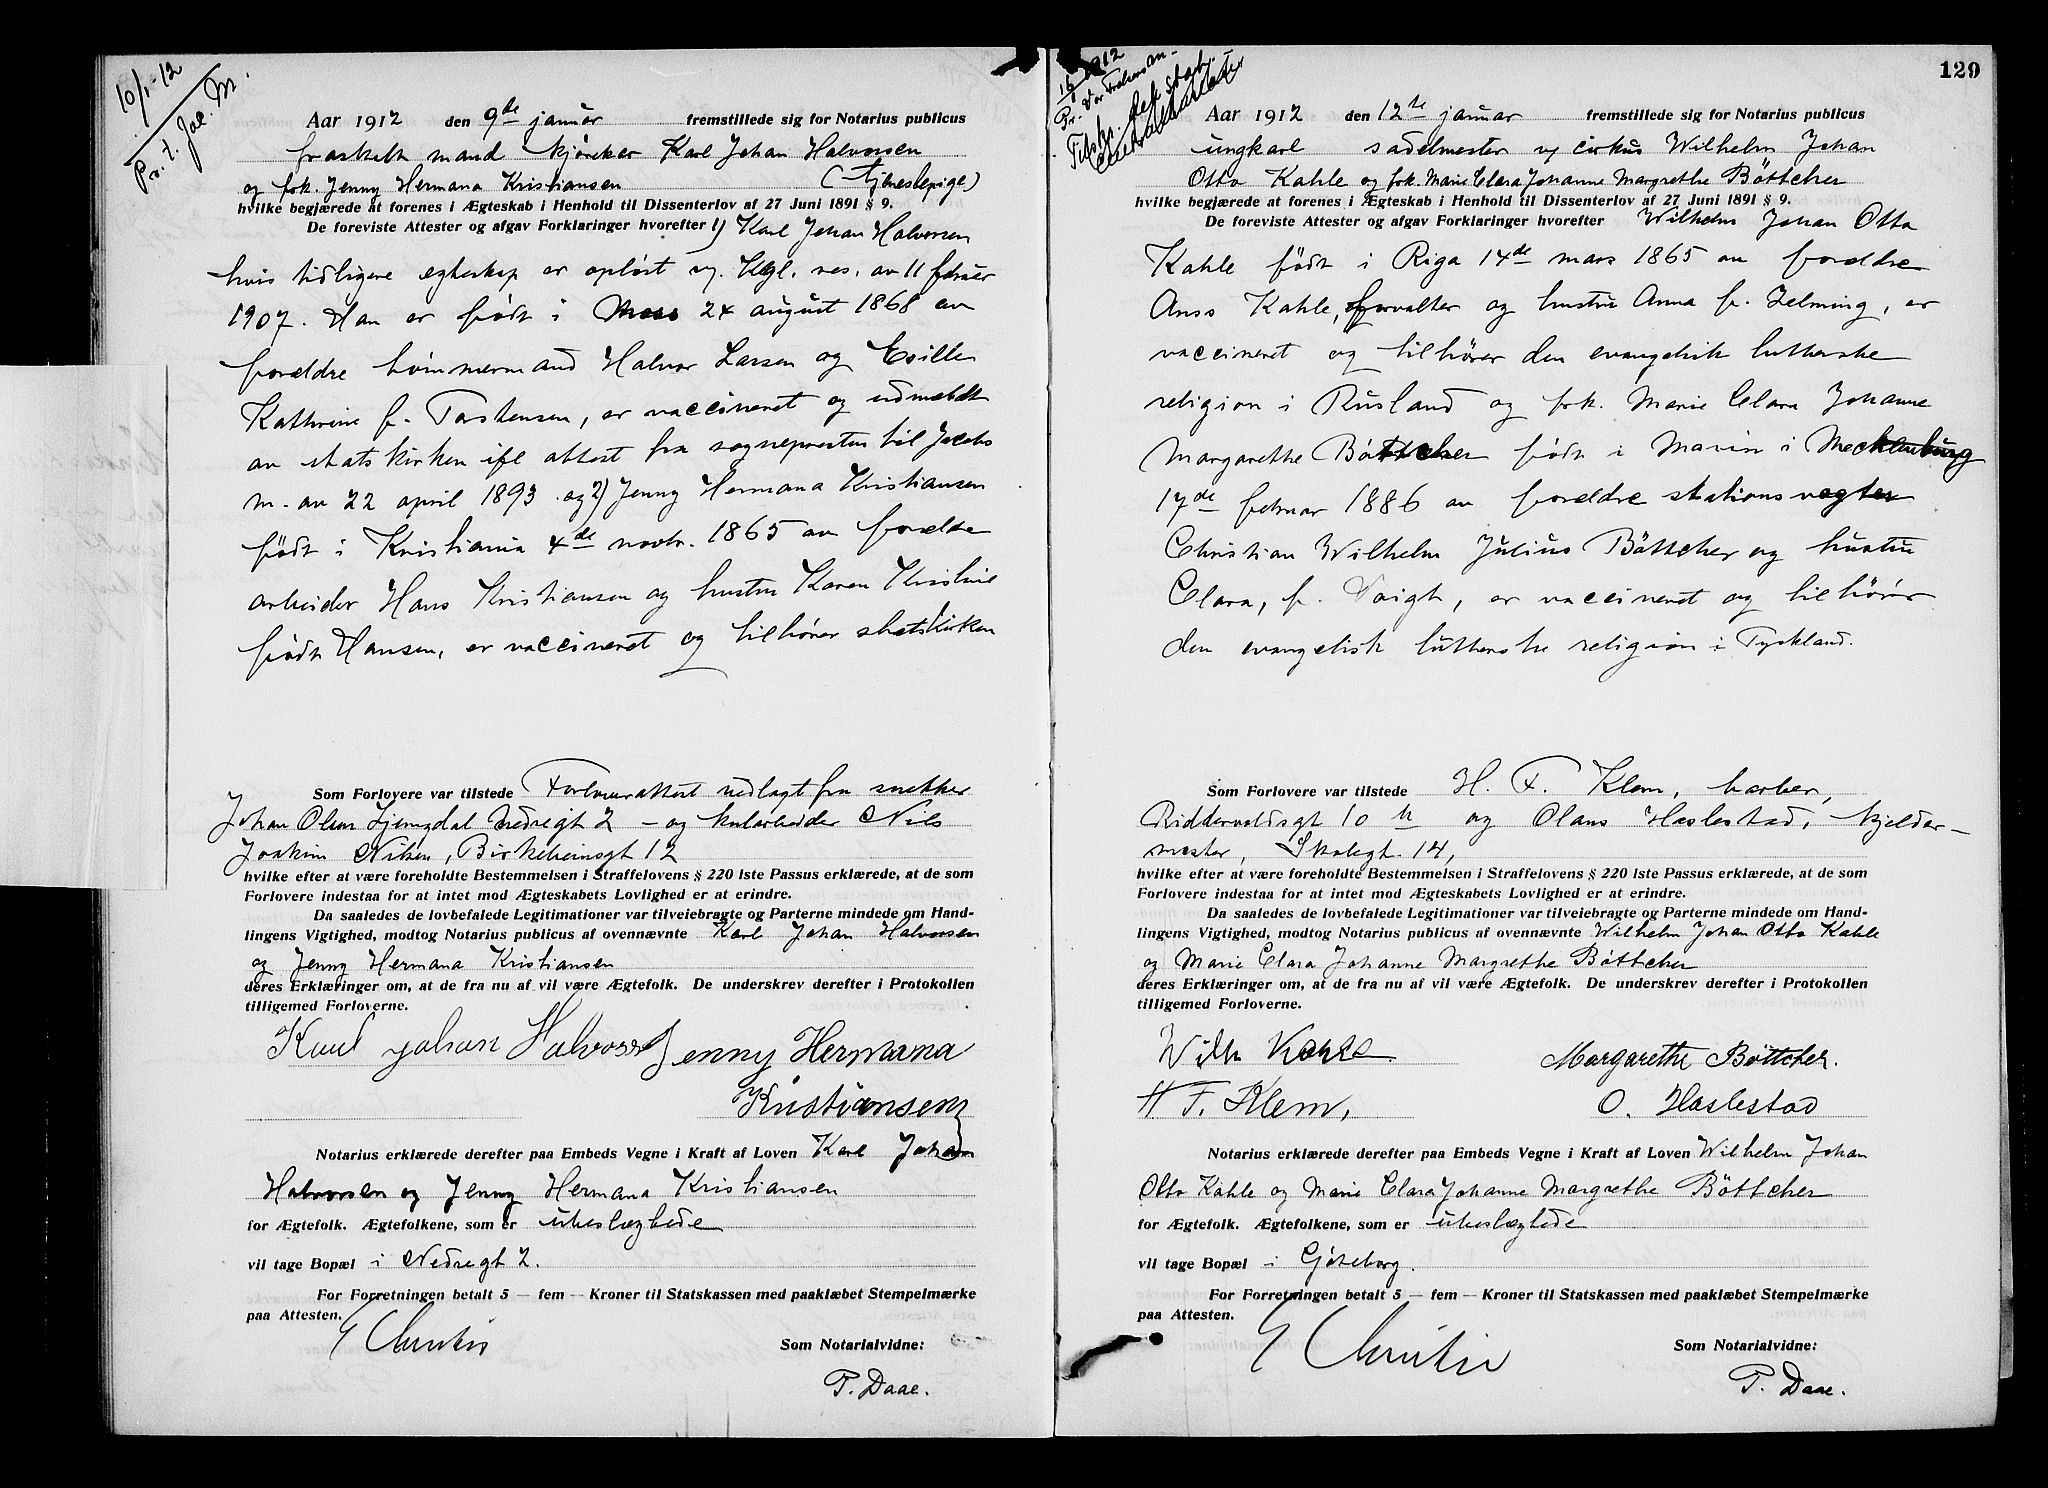 10/1-12
Pr. t. Jac. M.
Aar 1912 den 9de januar fremstillede sig for Notarius publicus
fraskilt mand kjørekar Karl Johan Halvorsen
og frk. Jenny Hermana Kristiansen (tjenestepige)
hvilke begjærede at forenes i Ægteskab i Henhold til Dissenterlov af 27 Juni 1891 § 9.
De foreviste Attester og afgav Forklaringer hvorefter 1) Karl Johan Halvorsen
hvis tidligere egteskap er opløst v. Kgl. res. av 11 februar
1907. Han er født i Moss 24 august 1868 av
forældre tømmermand Halvor Larsen og
Kathrine f. Torstensen, er vaccineret og udmeldt
av statskirken ifl attest fra sognepresten til Jacobs
m. av 22 april 1893 og 2) Jenny Hermana Kristiansen
født i Kristiania 4de novbr. 1865 av forældre
arbeider Hans Kristiansen og hustru Karen Kristine
født Hansen, er vaccineret og tilhører statskirken
Som Forlovere var tilstede Forloverattest nedlagt fra snekker
Johan Olsen Nedregt 2 - og Nils
Joakim Nilsen, Birkebeinsgt 12
hvilke efter at være foreholdte Bestemmelsen i Straffelovens § 220 1ste Passus erklærede, at de som
Forlovere indestaa for at intet mod Ægteskabets Lovlighed er at erindre.
Da saaledes de lovbefalede Legitimationer var tilveiebragte og Parterne mindede om Hand-
lingens Vigtighed, modtog Notarius publicus af ovennævnte Karl Johan Halvorsen
og Jenny Hermana Kristiansen
deres Erklæringer om, at de fra nu af vil være Ægtefolk. De underskrev derefter i Protokollen
tilligemed Forloverne.
Karl Johan Halvorsen Jenny Hermana
Kristiansen
Notarius erklærede derefter paa Embeds Vegne i Kraft af Loven Karl Johan
Halvorsen og Jenny Hermana Kristiansen
for Ægtefolk. Ægtefolkene, som er ubeslægtede
vil tage Bopæl i Nedregt 2.
For Forretningen betalt 5 — fem — Kroner til Statskassen med paaklæbet Stempelmærke
paa Attesten.
E Christie
Som Notarialvidne:
P. Daae.
129
Aar 1912 den 12te januar fremstillede sig for Notarius publicus
ungkarl sadelmester v cirkus Wilhelm Johan
Otto Kahle og frk. Marie Clara Johanne Margrethe Böttcher
hvilke begjærede at forenes i Ægteskab i Henhold til Dissenterlov af 27 Juni 1891 § 9.
De foreviste Attester og afgav Forklaringer hvorefter Wilhelm Johan Otto
Kahle født i Riga 14de mars 1865 av forældre
Anss Kahle, forvalter og hustru Anna f. Zelming, er
vaccineret og tilhører den evangelisk lutherske
religion i Rusland og frk. Marie Clara Johanne
Margarethe Böttcher født i Marin i Mecklenburg
17de februar 1886 av forældre stationsvogter
Christian Wilhelm Julius Böttcher og hustru
Clara, f. Voigt, er vaccineret og tilhører
den evangelisk lutherske religion i Tyskland.
Som Forlovere var tilstede H. F. Klem, barber,
Riddervoldsgt 10 og Olaus Haslestad, kjelder-
mester, Skolegt. 14,
hvilke efter at være foreholdte Bestemmelsen i Straffelovens § 220 1ste Passus erklærede, at de som
Forlovere indestaa for at intet mod Ægteskabets Lovlighed er at erindre.
Da saaledes de lovbefalede Legitimationer var tilveiebragte og Parterne mindede om Hand-
lingens Vigtighed, modtog Notarius publicus af ovennævnte Wilhelm Johan Otto Kahle
og Marie Clara Johanne Margrethe Böttcher
deres Erklæringer om, at de fra nu af vil være Ægtefolk. De underskrev derefter i Protokollen
tilligemed Forloverne.
Wilh Kahle Margarethe Böttcher.
H F. Klem, O. Haslestad
Notarius erklærede derefter paa Embeds Vegne i Kraft af Loven Wilhelm Johan
Otto Kahle og Marie Clara Johanne Margrethe Böttcher
for Ægtefolk. Ægtefolkene, som er ubeslægtede
vil tage Bopæl i Gjøteborg.
For Forretningen betalt 5 — fem — Kroner til Statskassen med paaklæbet Stempelmærke
paa Attesten.
E Christie
Som Notarialvidne:
P. Daae.